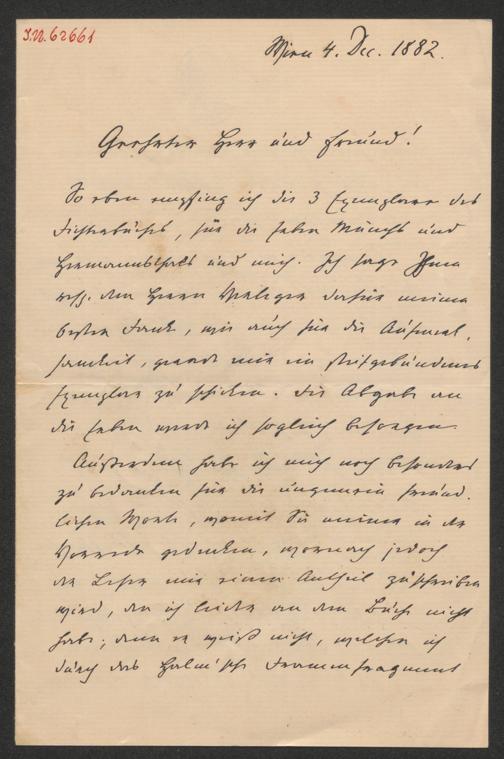 J.N. 62661
Wien 4. Dec. 1882.
Geehrter Herr und Freund!
So eben empfing ich die 3 Exemplare des
Dichterbuches, für die Erben Münch und
Hermannsthals und mich. Ich sage Ihnen
resp. dem Herrn Verleger dafür meinen
besten Dank, wie auch für die Aufmerk-
samkeit, gerade mir ein steifgebundenes
Exemplar zu schicken. Die Abgabe an
die Erben werde ich sogleich besorgen.
Außerdem habe ich mich noch besonders
zu bedanken für die ungemein freund-
lichen Worte, womit Sie meiner in der
Vorrede gedenken, wornach jedoch
der Leser mir einen Antheil zuschreiben
wird, den ich leider an dem Buche nicht
habe; denn er weiß nicht, welchen ich
durch das Halm'sche Dramenfragment